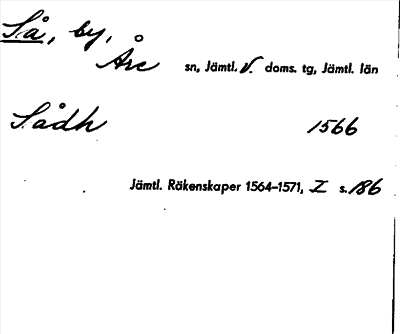 Så, by,
Åre sn, Jämtl. V. doms. tg, Jämtl. län
Sådh 1566
Jämtl. Räkenskaper 1564-1571, I s. 186